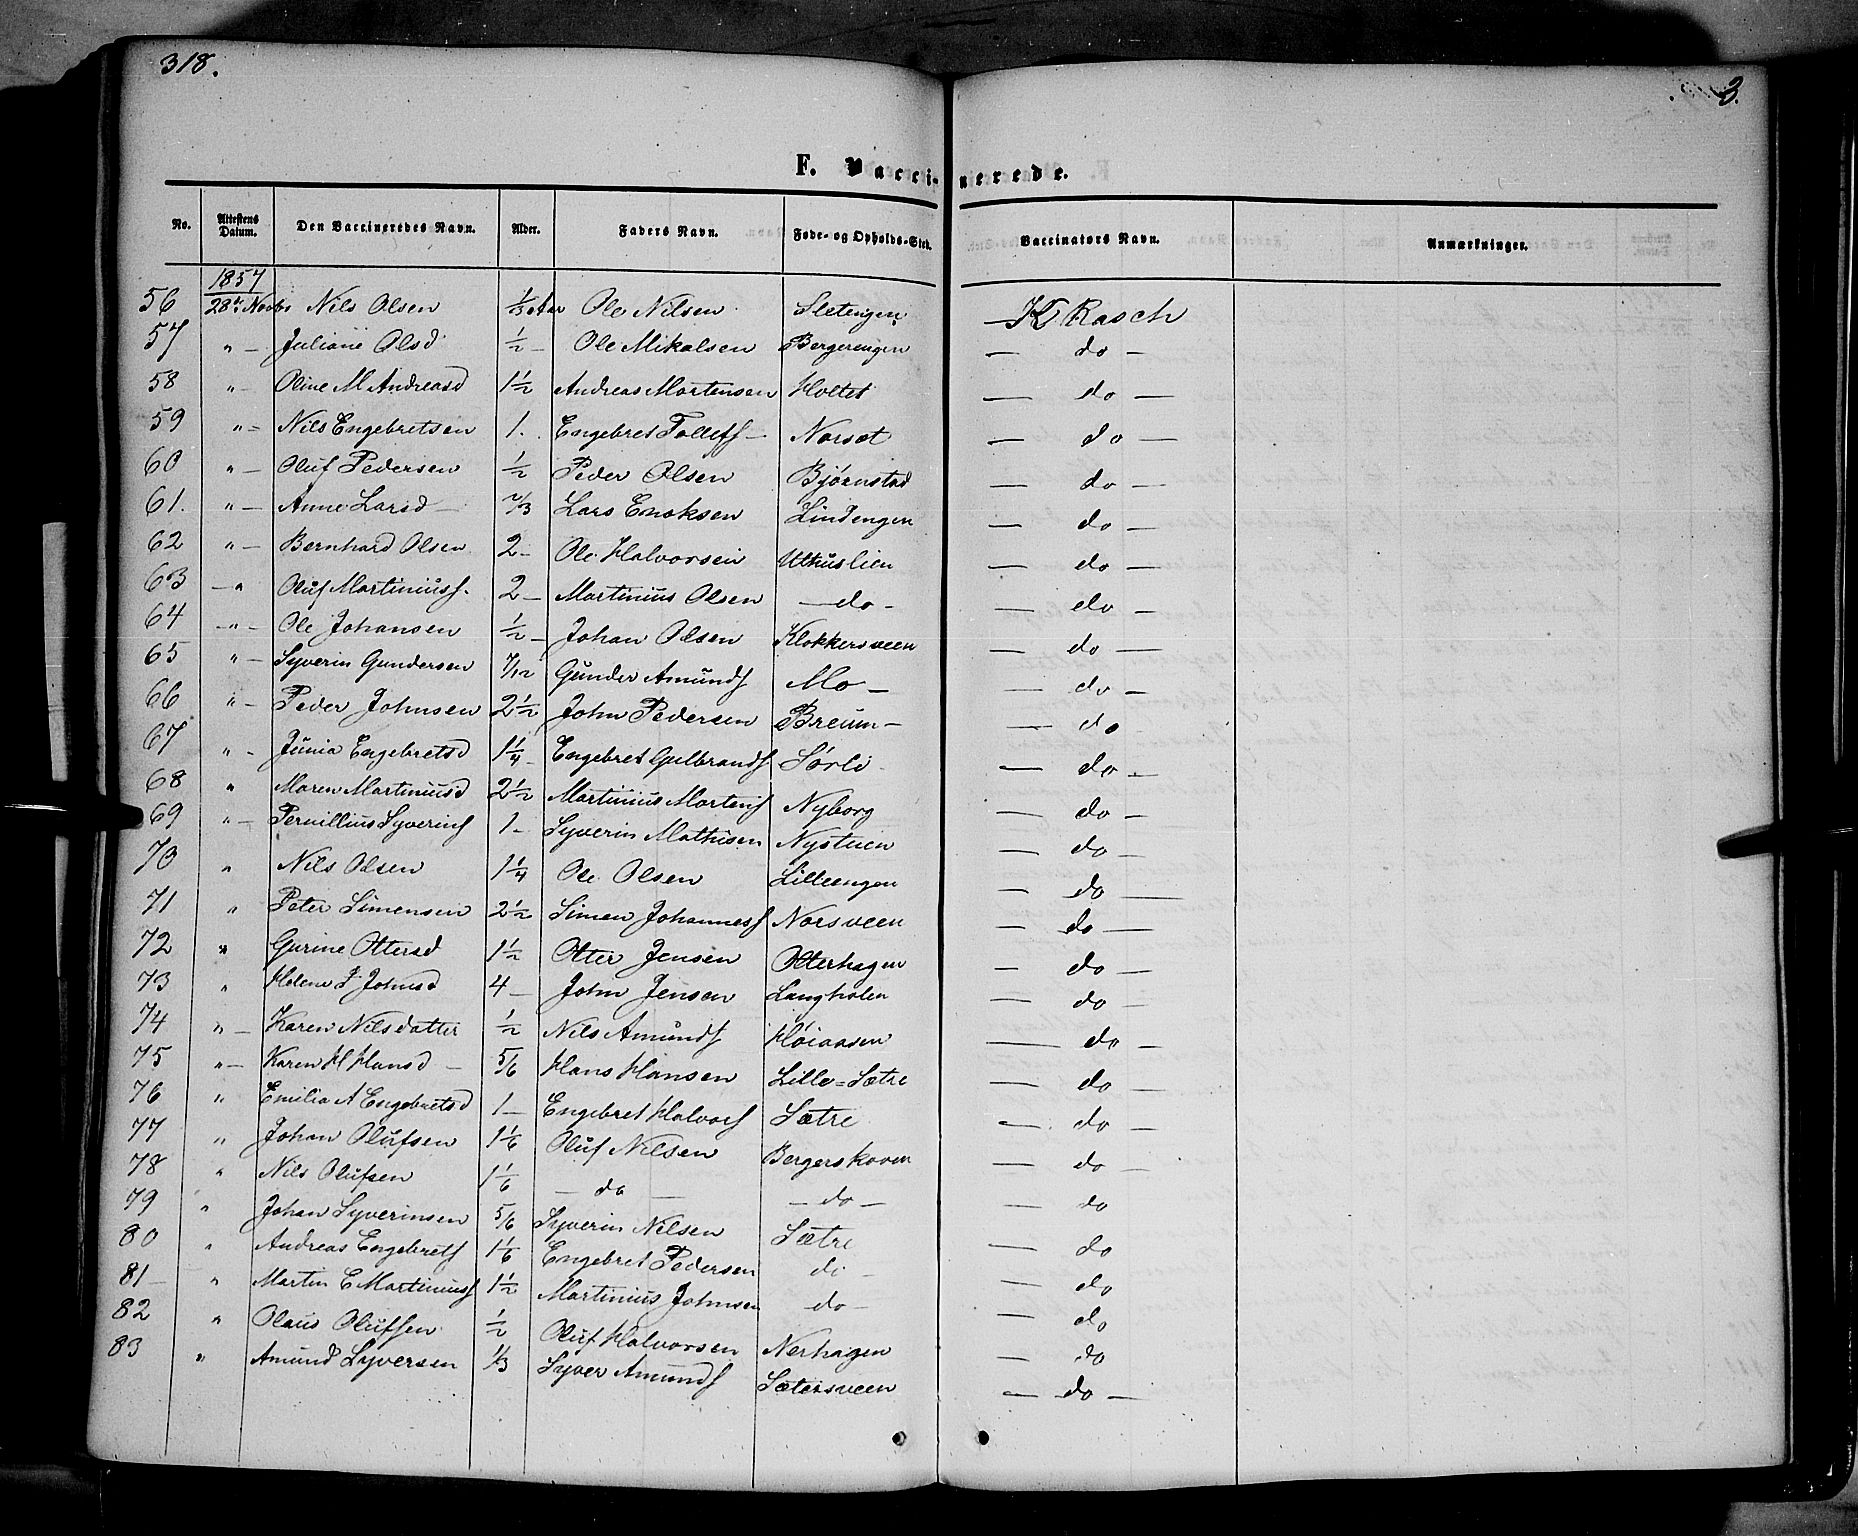 318.
3.
F. Vaccinerede.
No. Attestens Datum. Den Vaccineredes Navn. Alder. Faders Navn. Føde- og Opholds-Sted. Vaccinators Navn. Anmærkninger.
1857
56 28de Novbr Nils Olsen 1/3 Aar Ole Nilsen Sletengen — K Rasch
57 " — Juliane Olsd 1/2 — Ole Mikalsen Bergerengen — do —
58 " — Oline M Andreasd 1 1/2 Andreas Mortensen Holtet — do —
59 " — Nils Engebretsen 1. Engebret Tollefs — Norset — do —
60 " — Oluf Pedersen 1/2 Peder Olsen Bjørnstad — do —
61. " — Anne Larsd — 2/3 Lars Enoksen Lindengen — do —
62 " — Bernhard Olsen 2 — Ole Halvorsen Uthuslien — do —
63 — " Oluf Martiniusf. 2 — Martinius Olsen — do — — do —
64 — " — Ole Johansen 1/2 — Johan Olsen Klokkersveen — do —
65 " — Syverin Gundersen 7/12 Gunder Amundf Mo — — do —
66 " — Peder Johnsen 2 1/2 John Pedersen Breum — — do
67 " — Junia Engebretsd 1 1/4 — Engebret Gulbrandf Sørli — do —
68 " Maren Martiniusd 2 1/2 Martinius Mortenf Nyborg — do —
69 " — Pernillius Syverinf 1 — Syverin Mathisen Nystuen — do —
70 " Nils Olsen 1 1/4 Ole Olsen Lilleengen — do —
71 " Peter Simensen 2 1/2 Simen Johannesf Norsveen — do —
72 " Gurine Ottersd 1 1/2 Otter Jensen Otterhagen — do —
73 " Helene J Johnsd 4 — John Jensen Langholen — do —
74 " — Karen Nilsdatter 1/2 Nils Amundf Høiaasen — do —
75 " — Karen H Hansd — 5/6 Hans Hansen Lille=Sætre — do —
76 " Emilia A Engebretsd 1 — Engebret Halvorf Sætre — do —
77 " Johan Olufsen 1 1/6 Oluf Nilsen Bergerskoven — do —
78 " Nils Olufsen 1 1/6 — do — — do — — do
79 " Johan Syverinsen 5/6 Syverin Nilsen Sætre — do
80 " Andreas Engebretf 1 1/6 Engebret Pedersen do — — do
81 — " Martin E Martiniusf 1 1/2 Martinius Johnsen do — — do
82 " Olaus Olufsen 1/2 Oluf Halvorsen Nerhagen — do
83 " Amund Syversen 1/3 Syver Amundf Sætersveen — do —